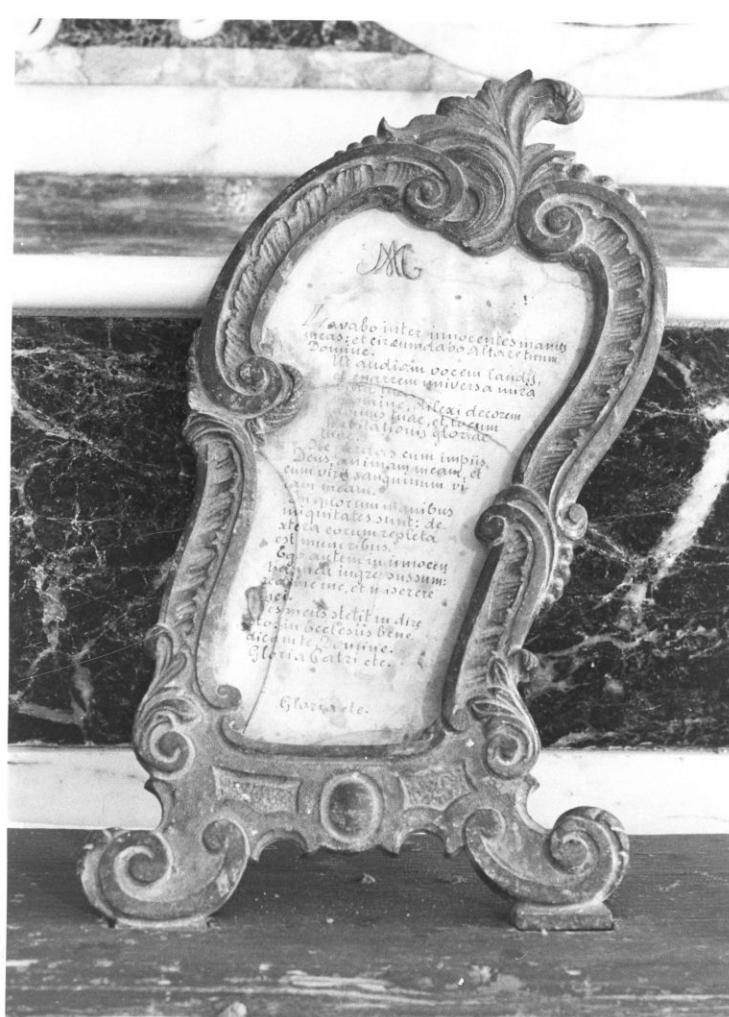 MA
Lavabo inter innocentes manus
meas: et circumdabo Altare tuum
Domine.
Ut audiam vocem laudis,
et enarrem universa mira
bilia tua.
Domine, dilexi decorem
domus tuae, et locum
habitationis gloriae
tuae.
Ne perdas cum impiis,
Deus, animam meam, et
cum viris sanguinum vi
tam meam.
In quorum manibus
iniquitates sunt: de
xtera eorum repleta
est muneribus.
Ego autem in innocen
tia mea ingressus sum:
redime me, et miserere
mei.
Pes meus stetit in dire
cto: in Ecclesiis bene
dicam te Domine.
Gloria Patri etc.
Gloria etc.